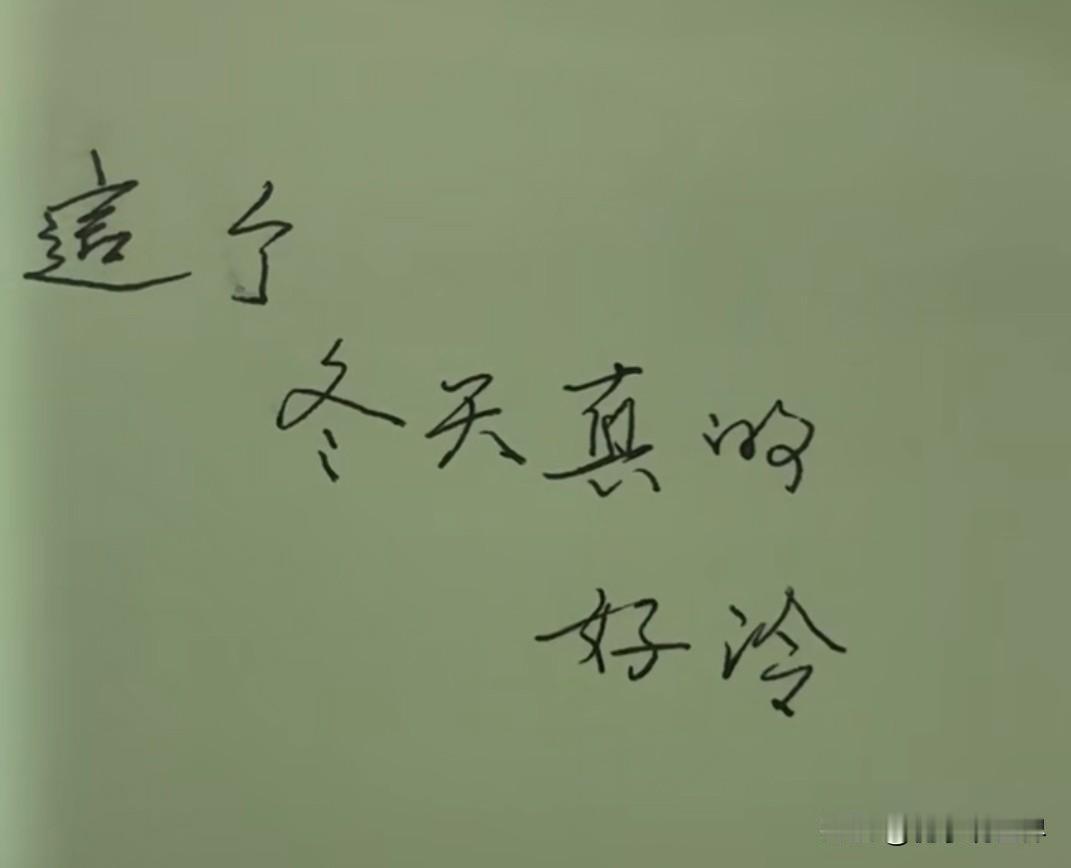 這个
冬天真的
好冷